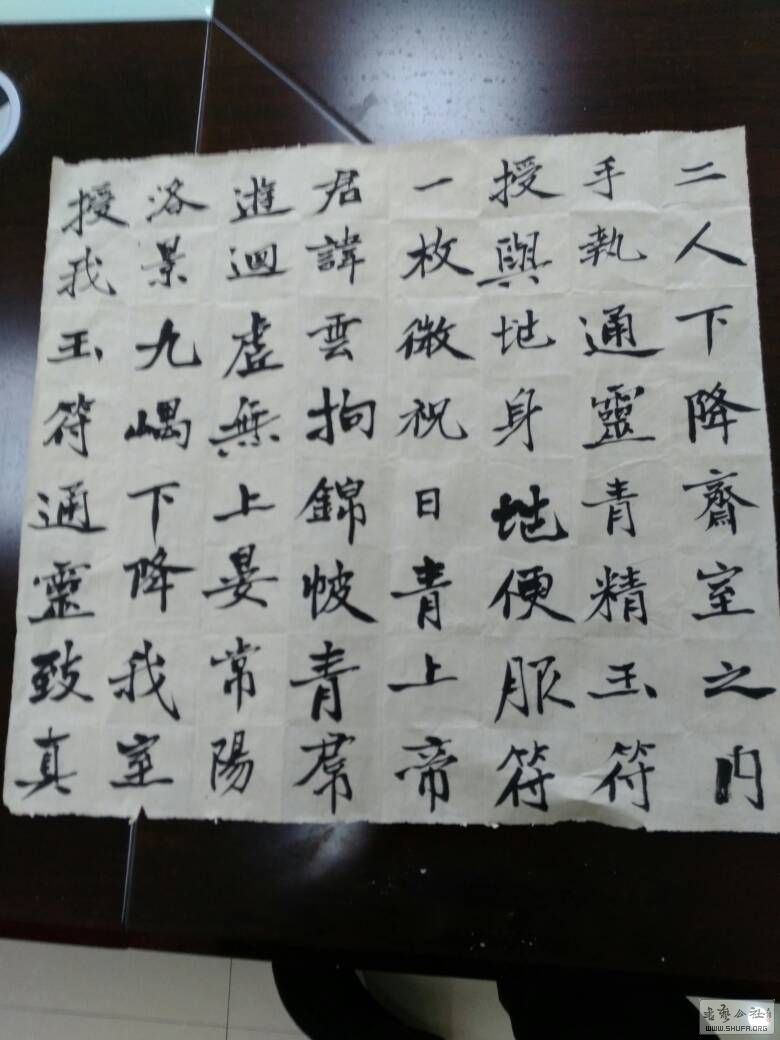 二人下降齋室之内
手執通靈青精玉符
授與地身地便服符
一枚微祝曰青上帝
君諱雲拘錦帔青帬
遊迴虛無上晏常陽
洛景九嵎下降我室
授我玉符通靈致真
书艺公社
WWW.SHUFA.ORG